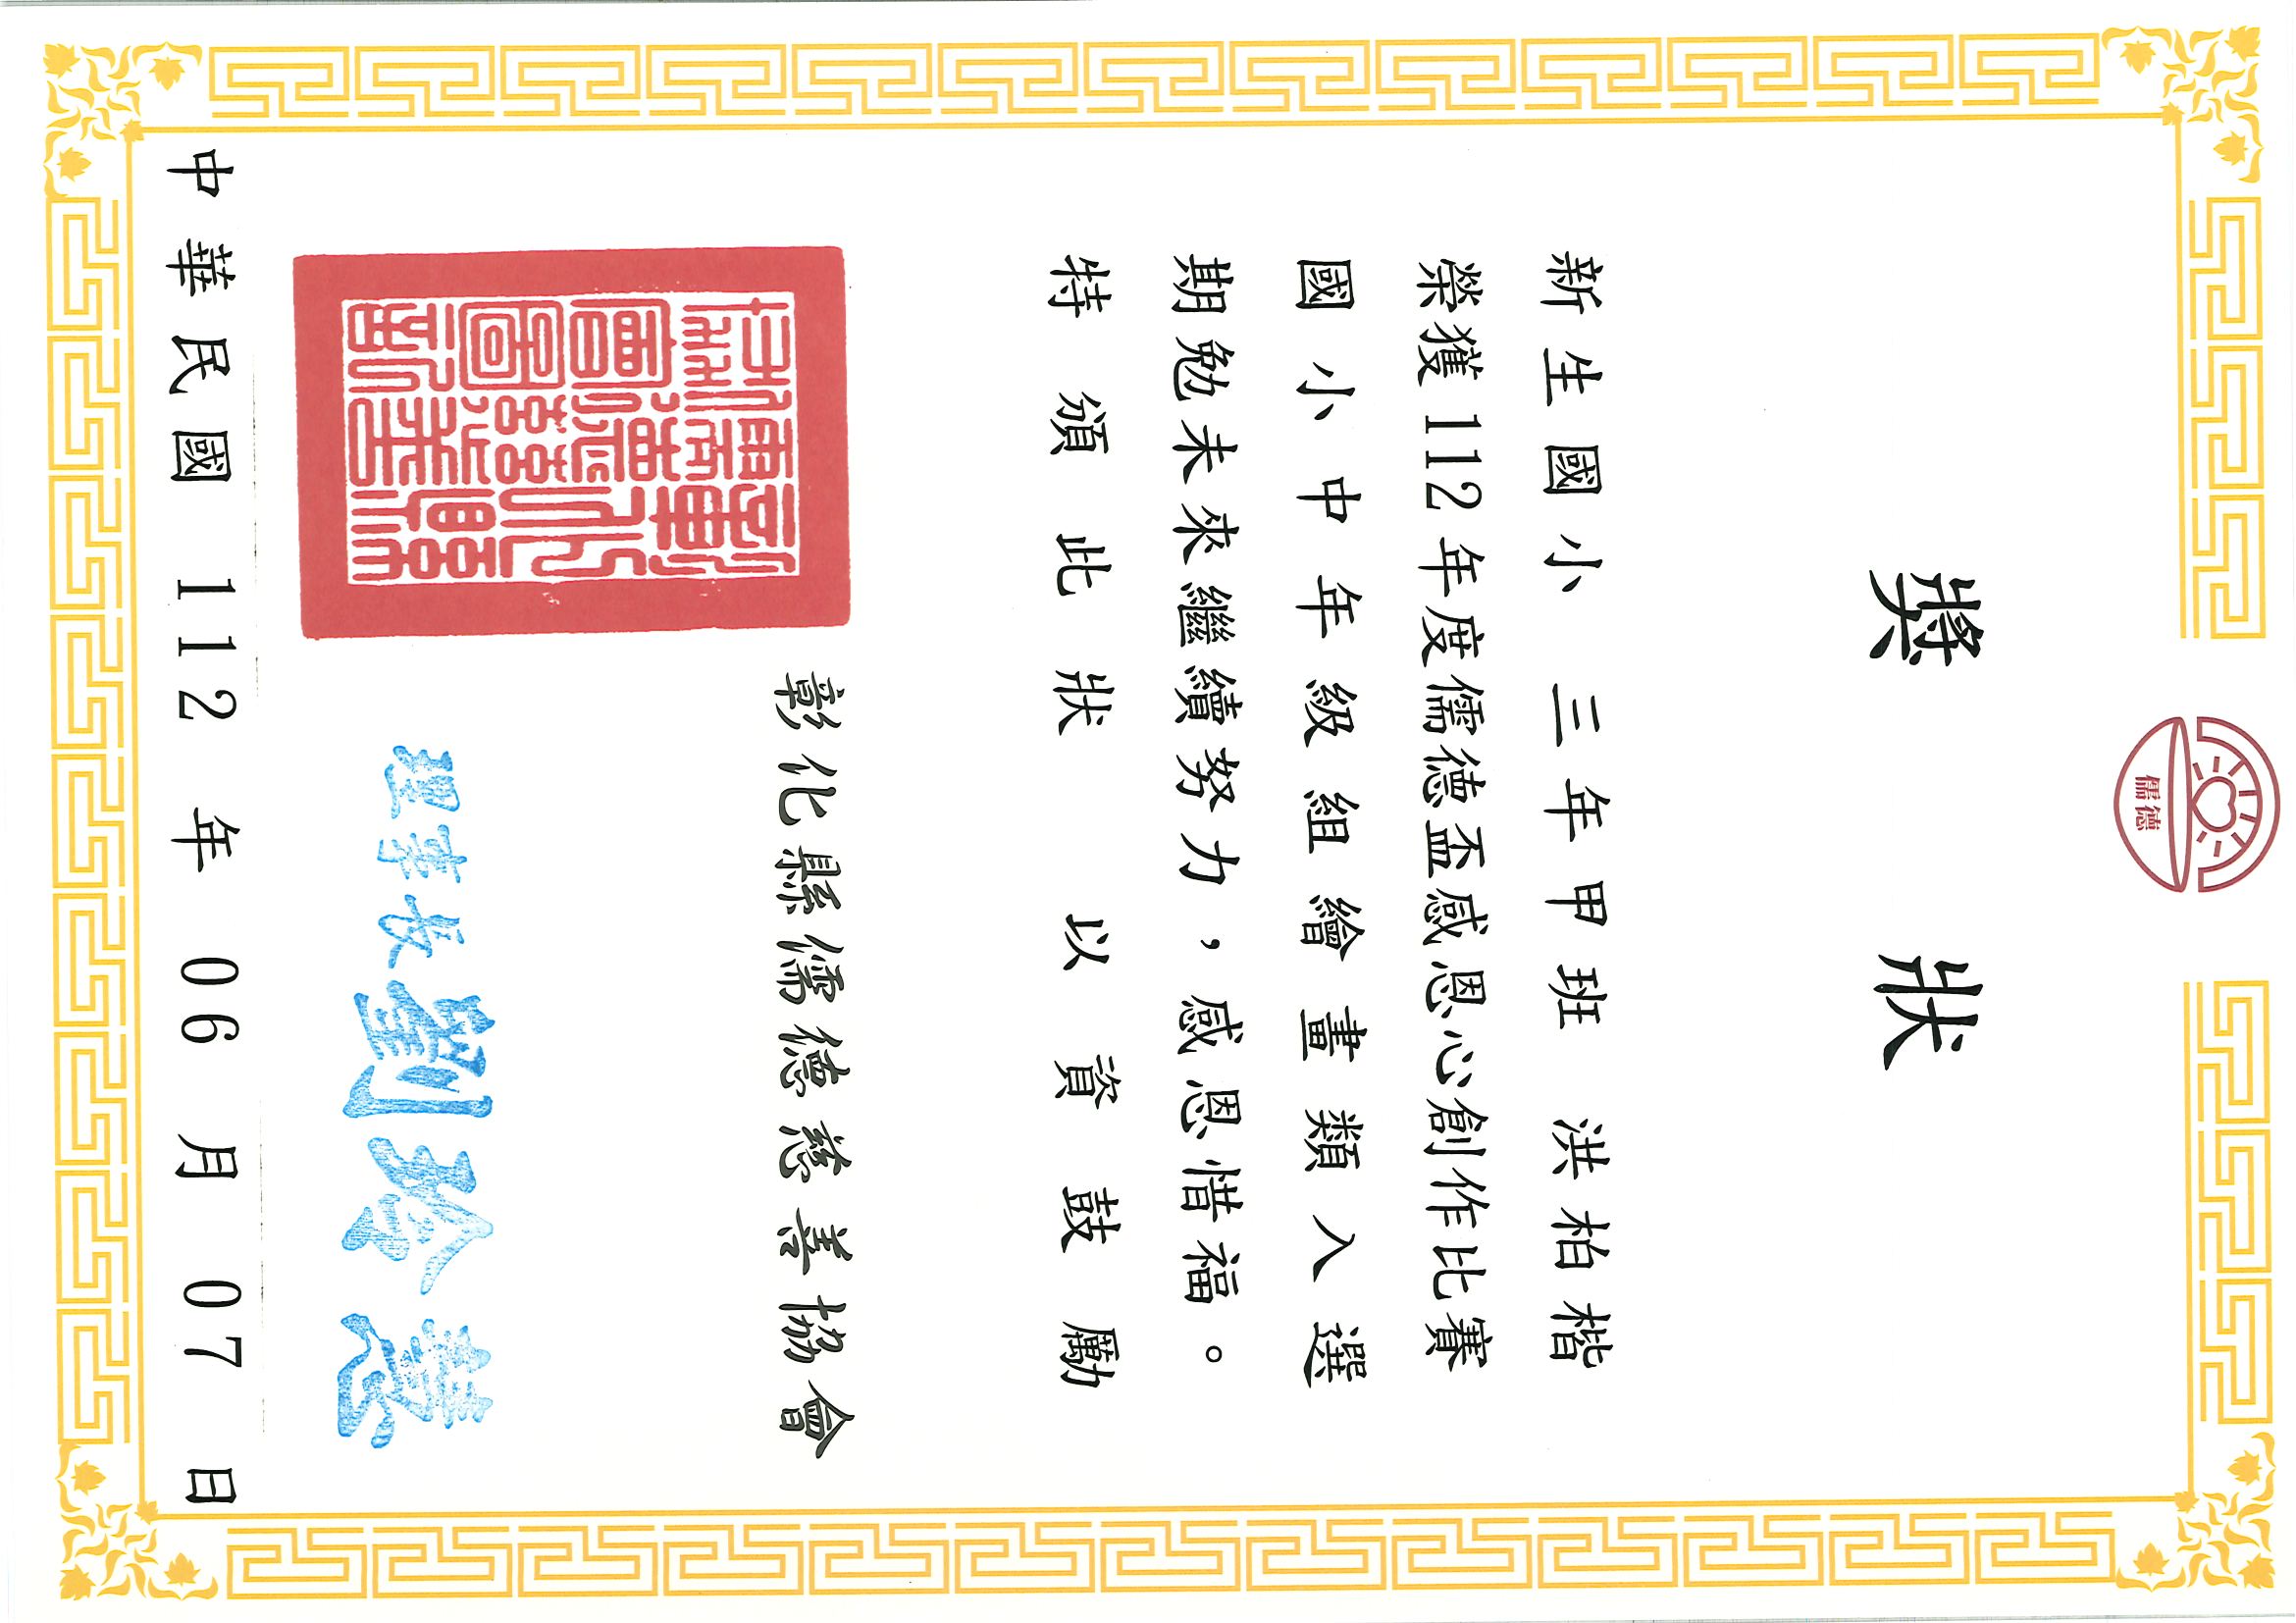 儒德
獎狀
新生國小 三年甲班 洪柏楷
榮獲112年度儒德盃感恩心創作比賽
國小中年級組繪畫類入選
期勉未來繼續努力,感恩惜福。
特頒此狀以資鼓勵
彰化縣儒德慈善協會
理事長劉玲慧
中華民國 112 年 06 月 07 日